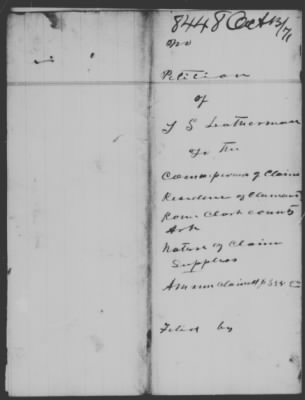 8448 Oct 13/71
No
Petition
of
J S Leatherman
To the
Commissioners of Claims
Residence of Claimant
Rome Clark county
Ark
Nature of Claim
Supplies
Amount Claimed $
Filed by